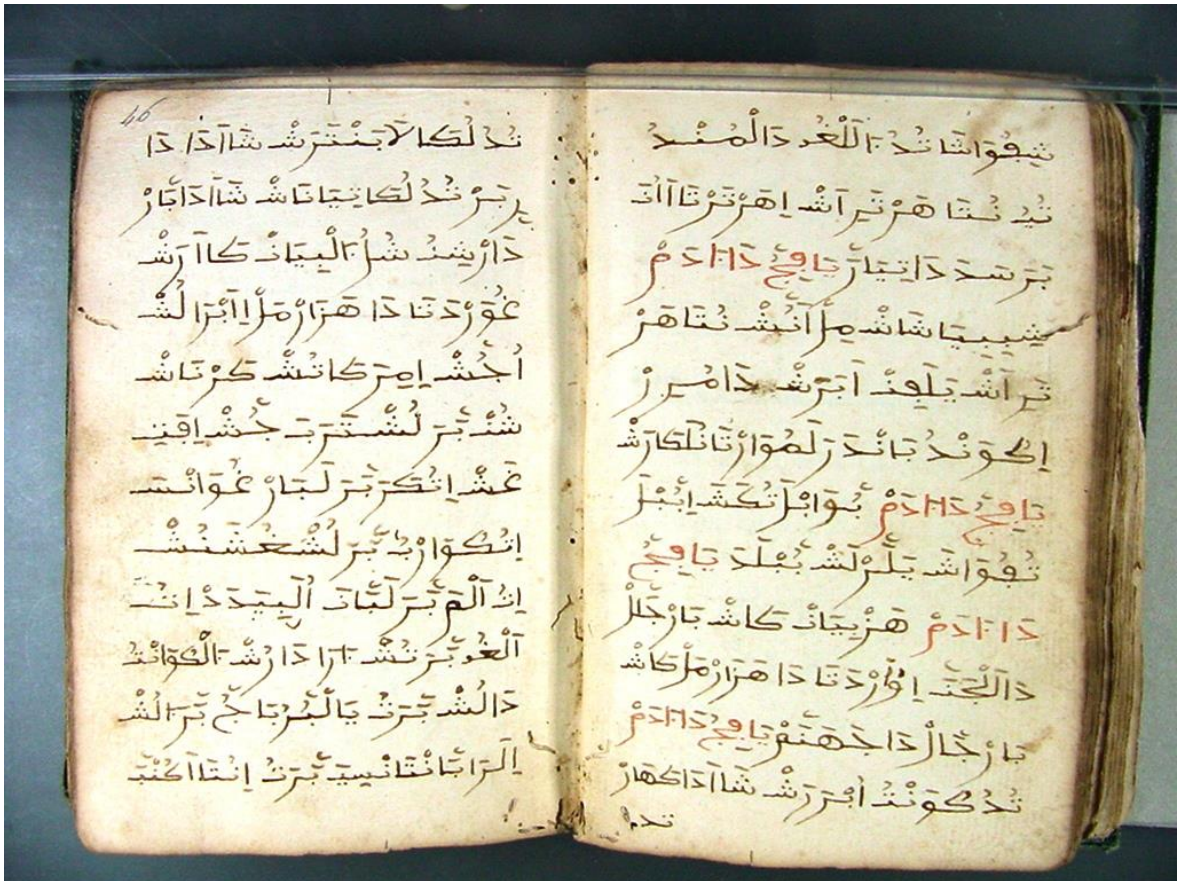 شِفُوَاشَا تُدُ اَلَلْغُو دَالْمُنْدُ
تُيُ نُنْتَا هَرْتَرِاَشْ اِهَرْتَرْتَااَاتَ
بَرَسَدَ دَاتِيَارَّ يَا فِجُّ دَاءَادَمْ
شِبِبِيَاشَاشْ مِلْ اَنُّشْ نُنْتَا هَرْ
تَرِاَشْ يَلَفِنْ اَبَرَشْ دَا مُرِرْ
اِكُوَنْدُ بَانْدَرَ لَمُوَارْتَا نُلَكَارَشْ
يَا فِجُّ دَاءَادَمْ بُوَابْلَ تُكَشَ اِبُبْلَ
تُفُوَاشَ يَلَّرْ لَشْ بُبْلَدَ يَا فِجُّ
دَاءَادَمْ هَزْ بِيَانْ كَاشْ بَارْجَّالْ
دَااَلْجَنَّ اِغُوَارْدَتَا دَا هَزَارْ مَلْ كَاشْ
بَارْجَّالْ دَا جَهَنَّمْ يَا فِجُّ دَاءَادَمْ
تُدُ كُوَنْتُ اُبْرَرَشْ شَااَدَا كَهَارْ
تدُ
46
تُدُ لُكَا لَابَنْتَرَشْ شَااَدَا دَا
رِبَرْ تُدُ لُكَا تِيَانَاشْ شَااَدَا بَّارْ
دَارْ شِنُ شُلُ اَلْبِيَانْ كَااَرَشْ
غُوَرْدَتَا دَا هَزَارْ مَلْ اِاَبْرَا لُشْ
اُجُّشْ اِمِرَ كَاتُشْ كَرْنَاشْ
شُنْ بَّرَ لُشْ تَرَبَجُّشْ اِفَتِ
غَشْ اِتُكَرَ بَّرَ لَبَارْغُوَانْسَ
اِتُكُوَارْبُ بَّرَ لُشْ غُشَنُشْ
اِتُ اَلْمَ بَّرَ لَبَّانَ اُلَبِيَدَدْ اِتُ
اَلْغُو بَّرَ تُشْ اَرَادَارُشْ اَلْكُوَانْتُ
دَالُشْ بَّرَتُ يَالْبُرُبَاجُّ بَّرَ اَلُشْ
اِلَرَابَّانْتَانْسِيَ بَّرَتُ اِنُتَا اَكُنْبَّ